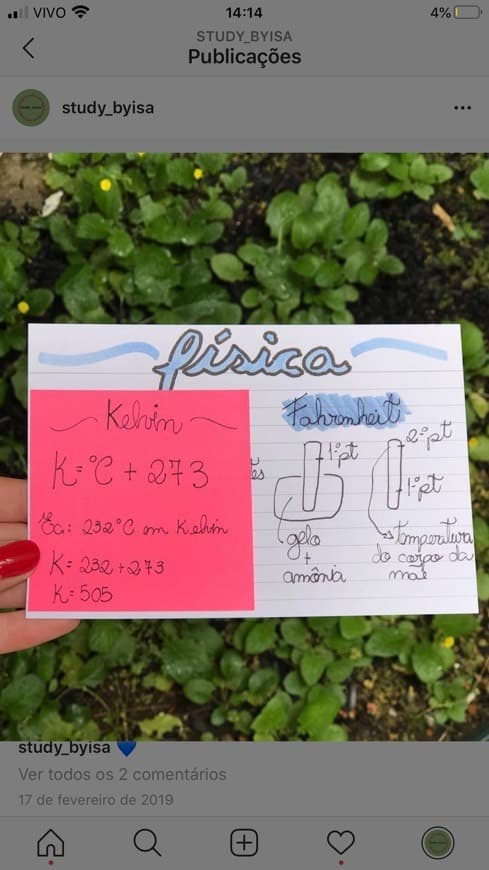 VIVO
14:14
4%
STUDY_BYISA
Publicações
study_byisa
física
Kelvin
K=°C + 273
Ex: 232°C em Kelvin
K= 232+273
K= 505
Fahrenheit
1º pt
gelo
+
amônia
2º pt
1º pt
temperatura
do corpo da
mãe
study_byisa
Ver todos os 2 comentários
17 de fevereiro de 2019